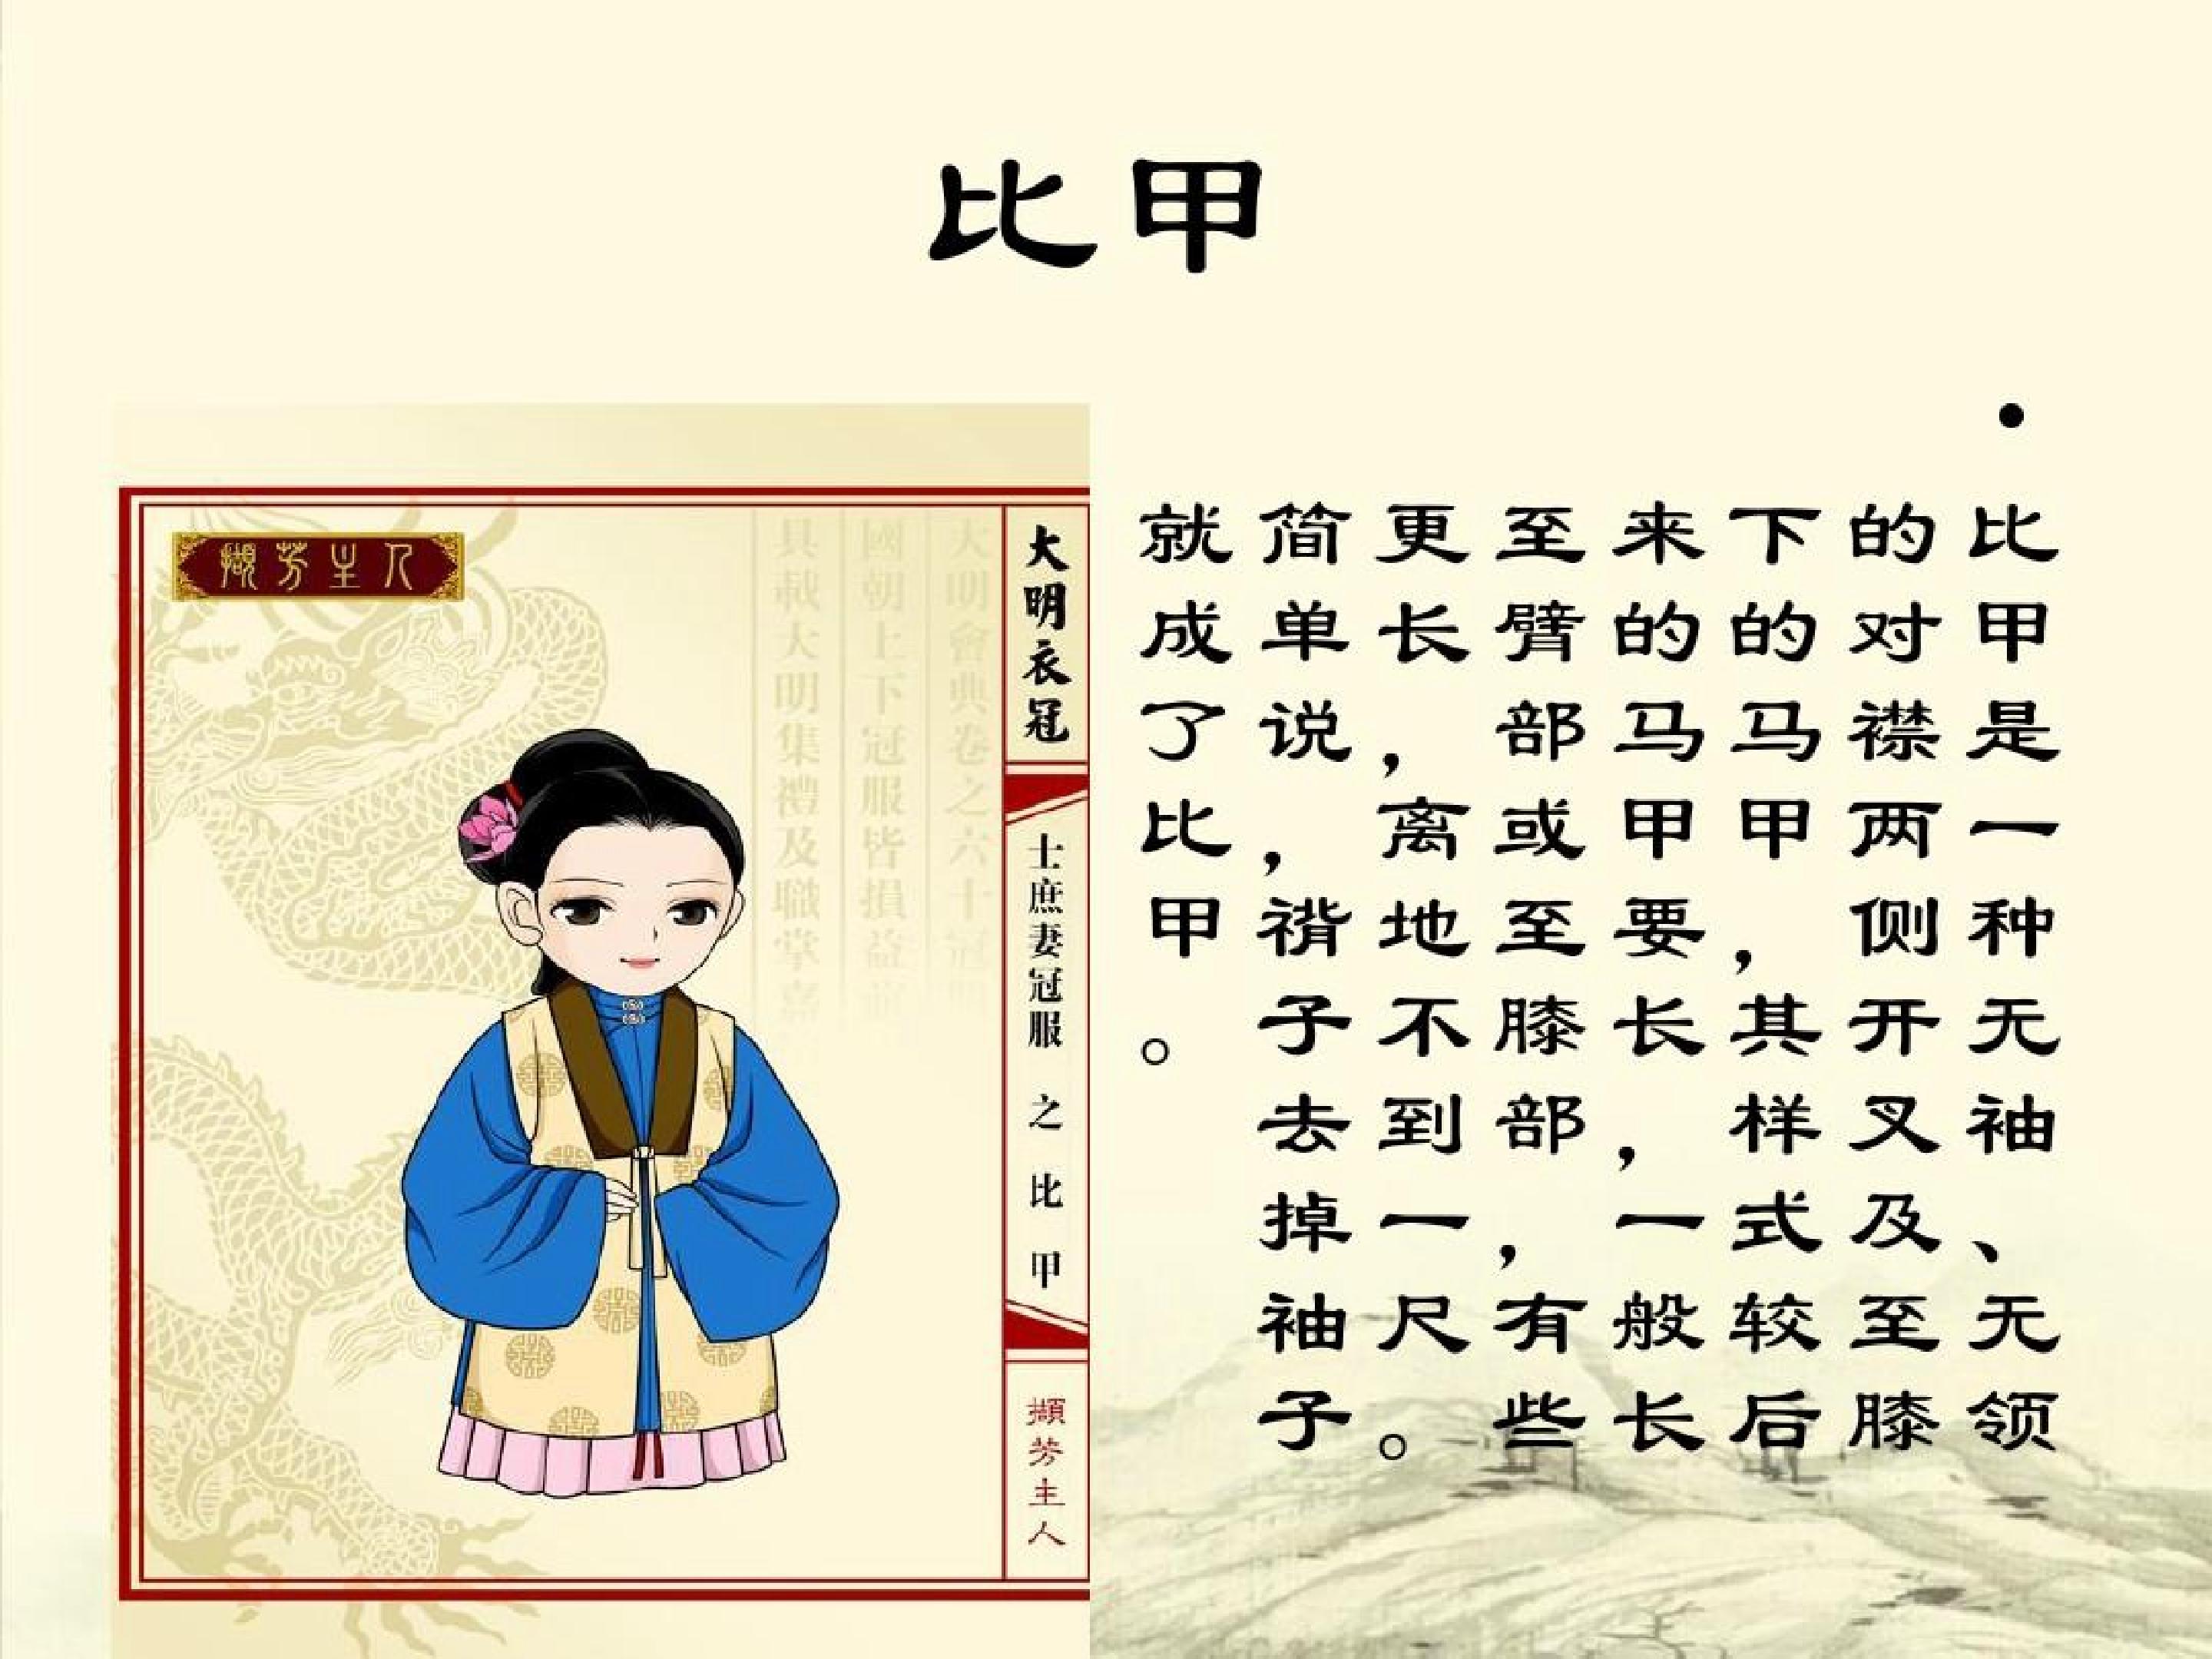 比甲
比甲是一种无袖、无领
的对襟两侧开叉及至膝
下的马甲，其样式较后
来的马甲要长，一般长
至臂部或至膝部，有些
更长，离地不到一尺。
简单说，褙子去掉袖子
就成了比甲。
擷芳主人
大明衣冠
士庶妻冠服之比甲
擷芳主人
大明會典卷之六十冠
國朝上下冠服皆損益
具載大明集禮及職掌嘉